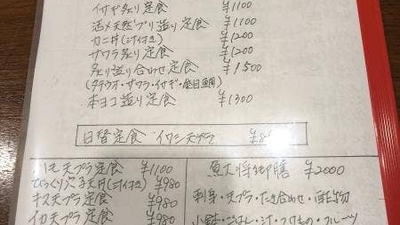 イサギ炙り定食 ¥1100
活〆天然ブリ造り定食 ¥1100
カニ丼(汁付き) ¥1200
サワラ炙り定食 ¥1200
炙り盛り合わせ定食 ¥1500
(タチウオ・サワラ・イサギ・金目鯛)
本ヨコ造り定食 ¥1300
日替定食 イワシ天プラ
ハモ天プラ定食 ¥1100
びっくり穴子天丼(汁付き) ¥980
キス天プラ定食 ¥980
イカ天プラ定食 ¥980
魚大将御膳 ¥2000
刺身・天プラ・たき合わせ・酢物
小鉢・ごはし・汁・つけもの・フルーツ